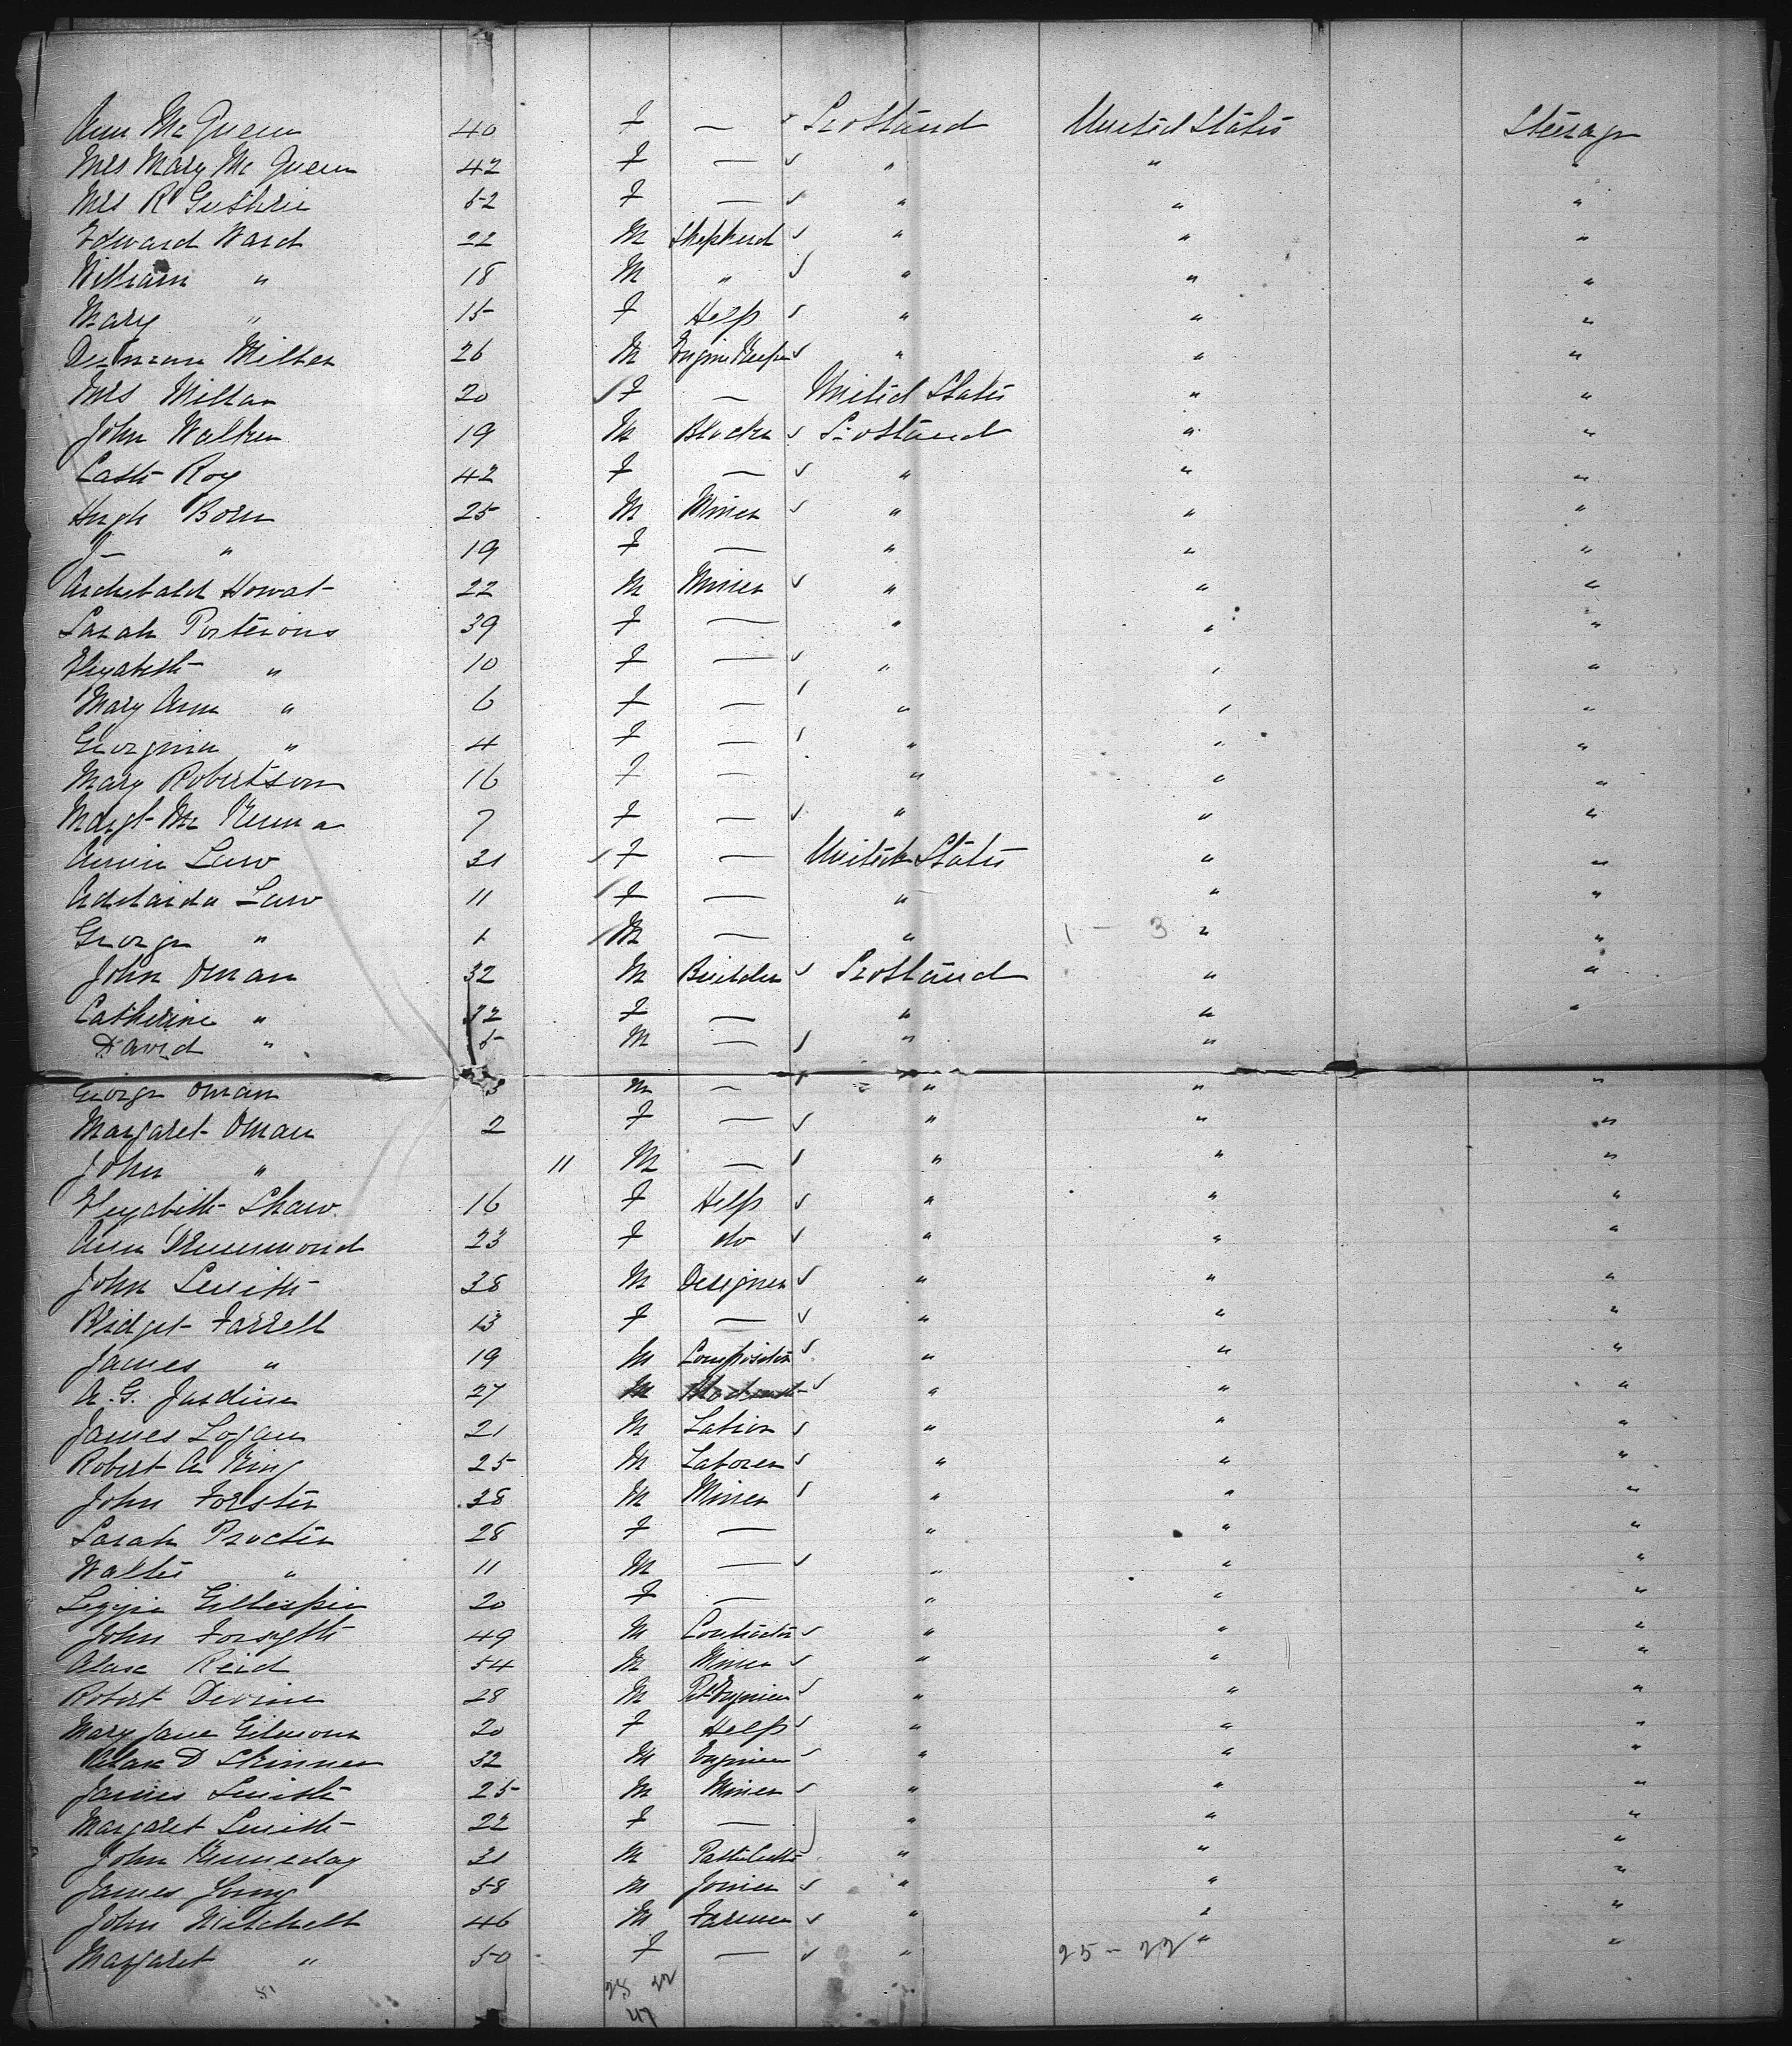 Ann McQueen 40 F — Scotland United States Steerage
Mrs Mary McQueen 42 F — " " "
Mrs R Guthrie 52 F — " " "
Edward Ward 22 M Shepherd " " "
William " 18 M " " " "
Mary " 15 F Help " " "
Millar 26 M Engine Keeper " " "
Mrs Millar 20 F — United States " "
John Walker 19 M Scotland " "
Cath Roy 42 F — " " "
Hugh Born 25 M Miner " " "
J— " 19 F — " " "
Archibald Howat 22 M Miner " " "
Sarah Porteious 39 F — " " "
Elizabeth " 10 F — " " "
Mary Ann " 6 F — " " "
Georgina " 4 F — " " "
Mary Robertson 16 F — " " "
Margt Mc 7 F — " " "
Annie Law 31 F — United States " "
Adelaida Law 11 F — " " "
George " 1 M — " 1 - 3 " "
John Oman 32 M Builder Scotland " "
Catherine " 32 F — " " "
David " 5 M — " " "
George Oman 3 M — " " "
Margaret Oman 2 F — " " "
John " 11 M — " " "
Elizabeth Shaw 16 F Help " " "
Ann Drummond 23 F do " " "
John Smith 38 M Designer " " "
Bridget Farrell 13 F — " " "
James " 19 M Compositor " " "
A. G. Jardine 27 M " " "
James Logan 21 M " " "
Robert A King 25 M Laborer " " "
John Forster 38 M Miner " " "
Sarah Procter 28 F — " " "
Walter " 11 M — " " "
Lizzie Gillespie 20 F — " " "
John Forsyth 49 M Contractor " " "
Alex Reid 54 M Miner " " "
Robert Devine 28 M " " "
Mary Jane Gilmour 20 F Help " " "
Alex D Skinner 32 M Engineer " " "
James Smith 25 M Miner " " "
Margaret Smith 22 F — " " "
John Kennedy 31 M " " "
James Young 58 M Joiner " " "
John Mitchell 46 M Farmer " " "
Margaret " 50 F — " 25 - 22 " "